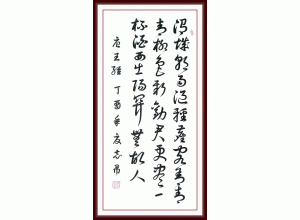 渭城朝雨浥轻塵客舍青
青柳色新勸君更盡一
杯酒西出陽關無故人
唐王維 丁酉年